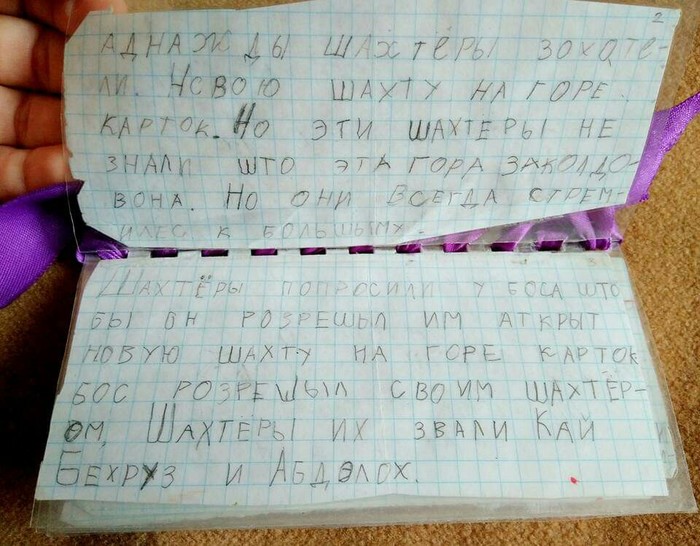 2
АДНАЖДЫ ШАХТЁРЫ ЗОХОТЕ-
ЛИ. НОВОЮ ШАХТУ НА ГОРЕ
КАРТОК. НО ЭТИ ШАХТЕРЫ НЕ
ЗНАЛИ ШТО ЭТА ГОРА ЗАКОЛДО-
ВОНА. НО ОНИ ВСЕГДА СТРЕМ-
ИЛЕС К БОЛЬШЫМУ.
ШАХТЁРЫ ПОПРОСИЛИ У БОСА ШТО
БЫ ОН РОЗРЕШЫЛ ИМ АТКРЫТ
НОВУЮ ШАХТУ НА ГОРЕ КАРТОК
БОС РОЗРЕШЫЛ СВОИМ ШАХТЁР-
ОМ, ШАХТЁРЫ ИХ ЗВАЛИ КАЙ
БЕХРУЗ И АБДОЛОХ.